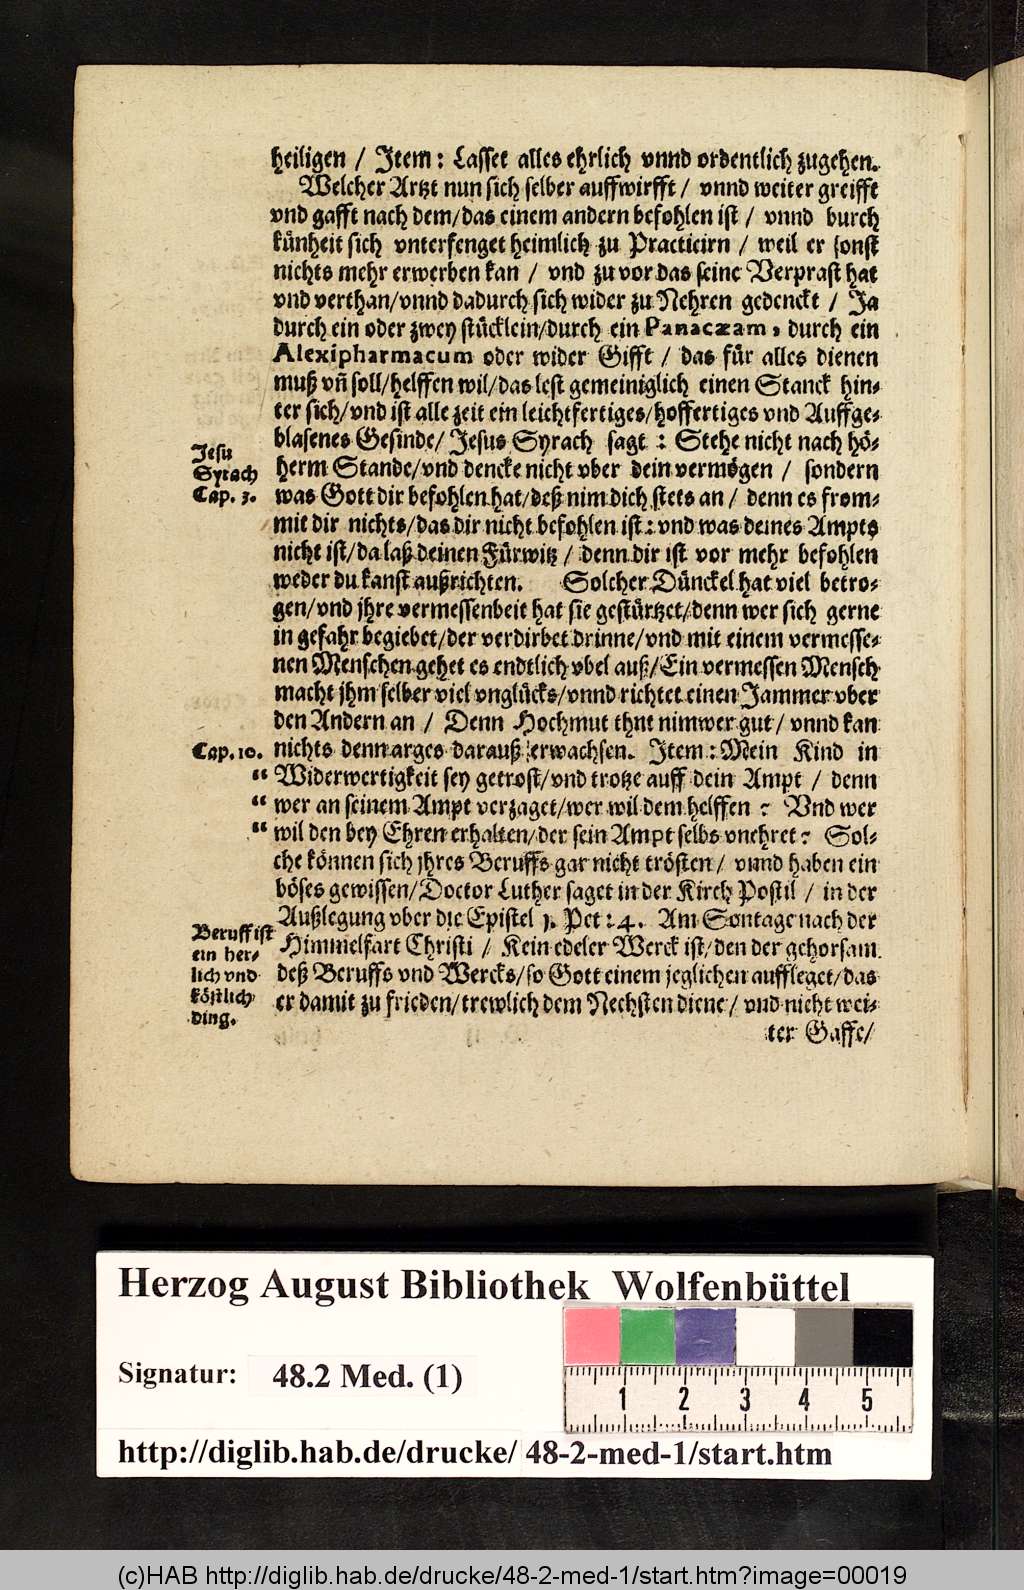 heiligen / Item: Lasset alles ehrlich vnnd ordentlich zugehen.
Welcher Artzt nun sich selber auffwirfft / vnnd weiter greifft
vnd gafft nach dem/das einem andern befohlen ist / vnnd burch
künheit sich vnterfenget heimlich zu Practicirn / weil er sonst
nichts mehr erwerben kan / vnd zu vor das seine Verprast hat
vnd verthan/vnnd dadurch sich wider zu Nehren gedenckt / Ja
durch ein oder zwey stücklein/durch ein Panacæam, durch ein
Alexipharmacum oder wider Gifft / das für alles dienen
muß vñ soll/helffen wil/das lest gemeiniglich einen Stanck hin-
ter sich/vnd ist alle zeit ein leichtfertiges/hoffertiges vnd Auffge-
blasenes Gesinde/ Jesus Syrach sagt : Stehe nicht nach hö-
Jesu
Syrach
Cap. 3.
herm Stande/vnd dencke nicht vber dein vermögen / sondern
was Gott dir befohlen hat/deß nim dich stets an / denn es from-
mit dir nichts/das dir nicht befohlen ist : vnd was deines Ampts
nicht ist/da laß deinen Fürwitz / denn dir ist vor mehr befohlen
weder du kanst außrichten. Solcher Dünckel hat viel betro-
gen/vnd jhre vermessenbeit hat sie gestürtzet/denn wer sich gerne
in gefahr begiebet/der verdirbet drinne/vnd mit einem vermesse-
nen Menschen gehet es endtlich vbel auß/Ein vermessen Mensch
macht jhm selber viel vnglücks/vnnd richtet einen Jammer vber
den Andern an / Denn Hochmut thut nimwer gut / vnnd kan
Cap. 10.
nichts denn arges darauß erwachsen. Item : Mein Kind in
“ Widerwertigkeit sey getrost/vnd trotze auff dein Ampt / denn
“ wer an seinem Ampt verzaget/wer wil dem helffen ? Vnd wer
“ wil den bey Ehren erhalten/der sein Ampt selbs vnehret ? Sol-
che können sich jhres Beruffs gar nicht trösten / vnnd haben ein
böses gewissen/Doctor Luther saget in der Kirch Postil / in der
Außlegung vber die Epistel 1. Pet : 4. Am Sontage nach der
Beruff ist
ein her-
lich vnd
köstlich
ding.
Himmelfart Christi / Kein edeler Werck ist/den der gehorsam
deß Beruffs vnd Wercks/so Gott einem jeglichen auffleget/das
er damit zu frieden/trewlich dem Nechsten diene / vnd nicht wei-
ter Gaffe/
Herzog August Bibliothek Wolfenbüttel
Signatur: 48.2 Med. (1)
1 2 3 4 5
http://diglib.hab.de/drucke/ 48-2-med-1/start.htm
(c)HAB http://diglib.hab.de/drucke/48-2-med-1/start.htm?image=00019